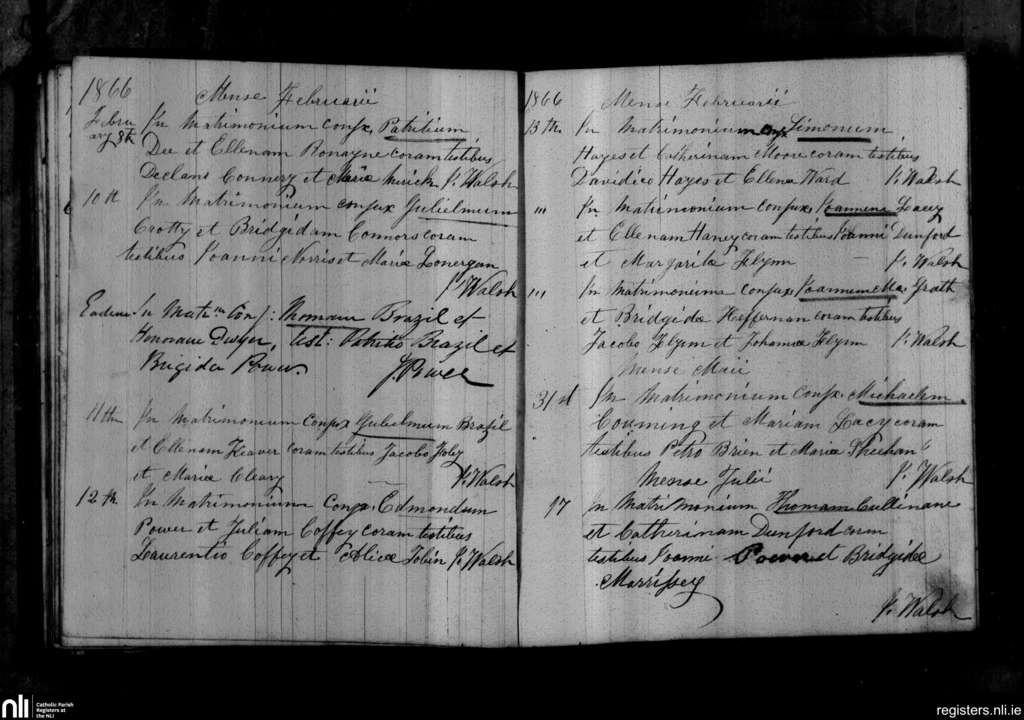 1866 Mense Februarii
Febru In Matrimonium conjx. Patritium
ary 8th Dee et Ellenam Ronayne coram testibus
Declano Connery et Maria Mirick P. Walsh
10th In Matrimonium conjux Gulielmum
Crotty et Bridgidam Connors coram
testibus Joanni Norris et Maria Lonergan
P. Walsh
Eadem In Matm Conj: Thomam Brazil et
Honoram Dwyer, test: Patritio Brazil et
Brigida Power. J. Power
11th In Matrimonium Conjux Gulielmum Brazil
et Ellenam Keaver coram testibus Jacobo Foley
et Maria Cleary P. Walsh
12th In Matrimonium Conjx. Edmondum
Power et Juliam Coffey coram testibus
Laurentio Coffey et Alicia Tobin P. Walsh
1866 Mense Februarii
13th. In Matrimonium conjx Simonum
Hayes et Catherinam Moore coram testibus
Davidico Hayes et Ellena Ward P. Walsh
" In Matrimonium conjux Joannem Lacey
et Ellenam Haney coram testibus Joanni Dunford
et Margarita Flynn P. Walsh
" In Matrimonium conjux Joannem Ma. Grath
et Bridgida Heffernan coram testibus
Jacobo Flynn et Johanna Flynn P. Walsh
Mense Maii
31st In Matrimonium Conjx. Michaelem
Couming et Mariam Lacy coram
testibus Petro Brien et Maria Sheehan
Mense Julii P. Walsh
17 In Matrimonium Thomam Cullinane
et Catherinam Dunford coram
testibus Joanni Power et Bridgida
Morrissey
P. Walsh
nli Catholic Parish
Registers at
the NLI
registers.nli.ie